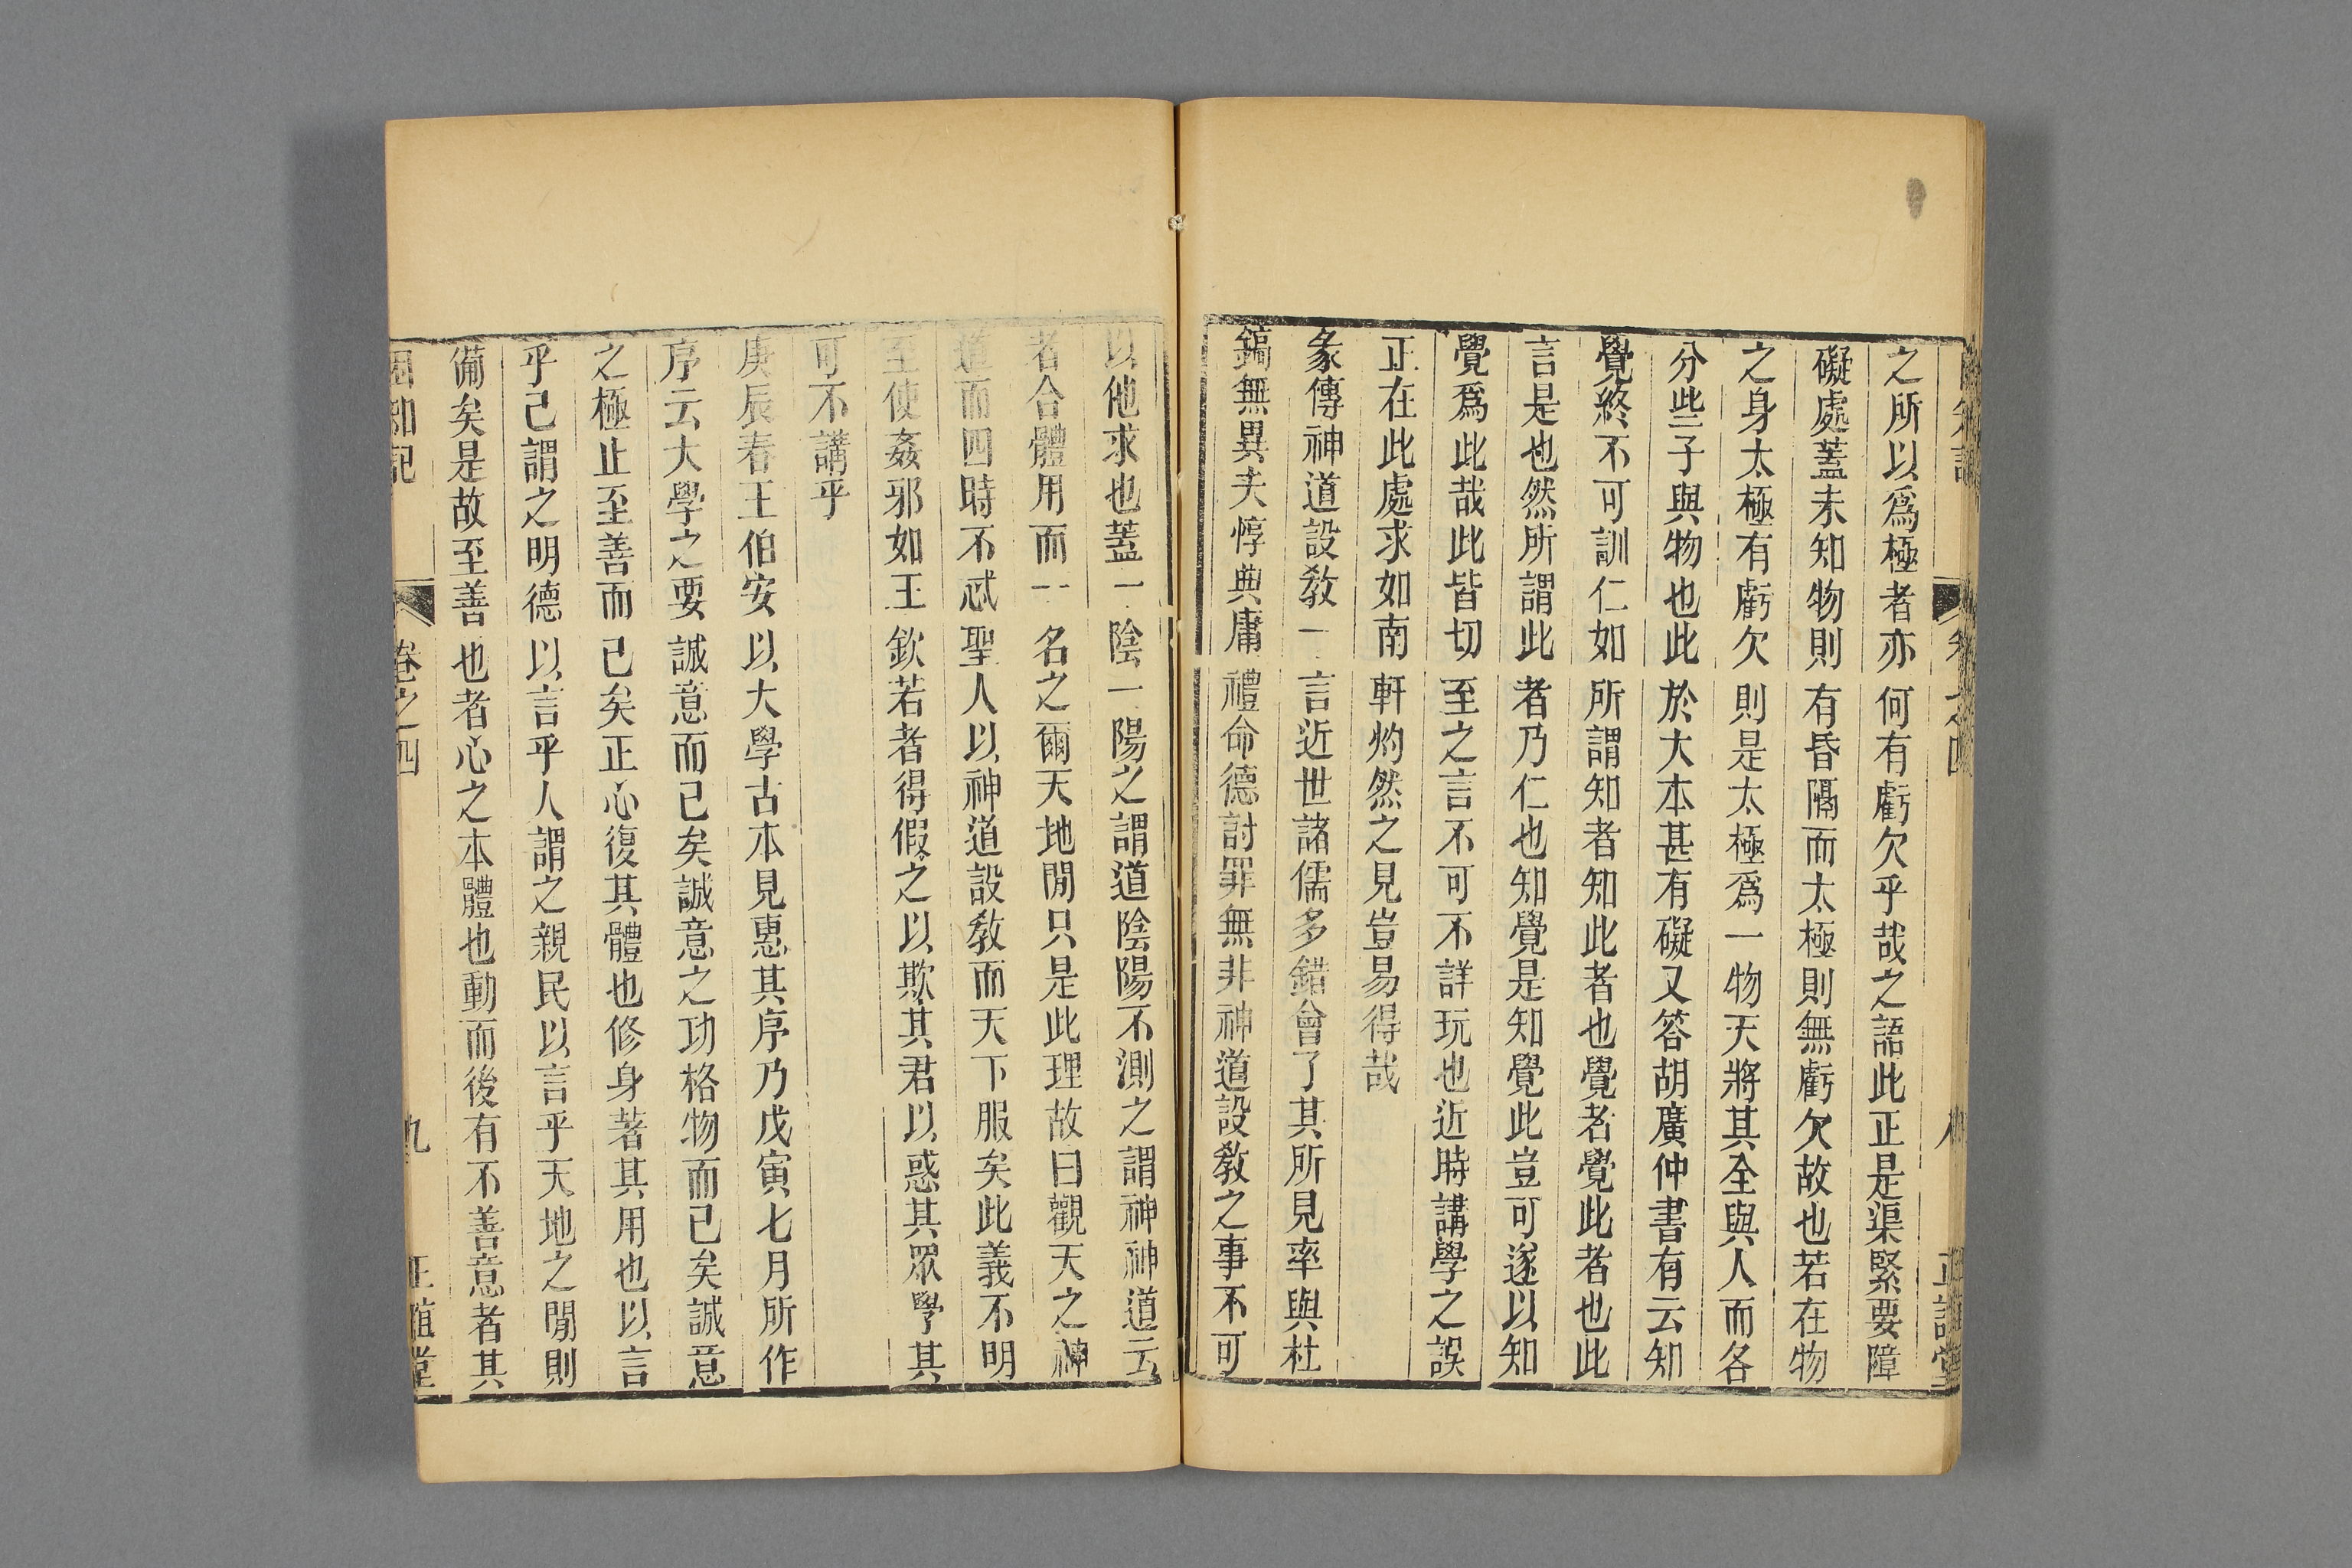 之所以爲極者亦何有虧欠乎哉之語此正是渠緊要障
礙處蓋未知物則有昏隔而太極則無虧欠故也若在物
之身太極有虧欠則是太極爲一物天將其全與人而各
分些子與物也此於大本甚有礙又答胡廣仲書有云知
覺終不可訓仁如所謂知者知此者也覺者覺此者也此
言是也然所謂此者乃仁也知覺是知覺此豈可遂以知
覺爲此哉此皆切至之言不可不詳玩也近時講學之誤
正在此處求如南軒灼然之見豈易得哉
彖傳神道設敎一言近世諸儒多錯會了其所見率與杜
鎬無異夫惇典庸禮命德討罪無非神道設敎之事不可
以他求也蓋一陰一陽之謂道陰陽不測之謂神神道云
者合體用而一名之爾天地閒只是此理故曰觀天之神
道而四時不忒聖人以神道設敎而天下服矣此義不明
至使姦邪如王欽若者得假之以欺其君以惑其眾學其
可不講乎
庚辰春王伯安以大學古本見惠其序乃戊寅七月所作
序云大學之要誠意而已矣誠意之功格物而已矣誠意
之極止至善而已矣正心復其體也修身著其用也以言
乎己謂之明德以言乎人謂之親民以言乎天地之閒則
備矣是故至善也者心之本體也動而後有不善意者其
困知記 卷之四 九 正誼堂